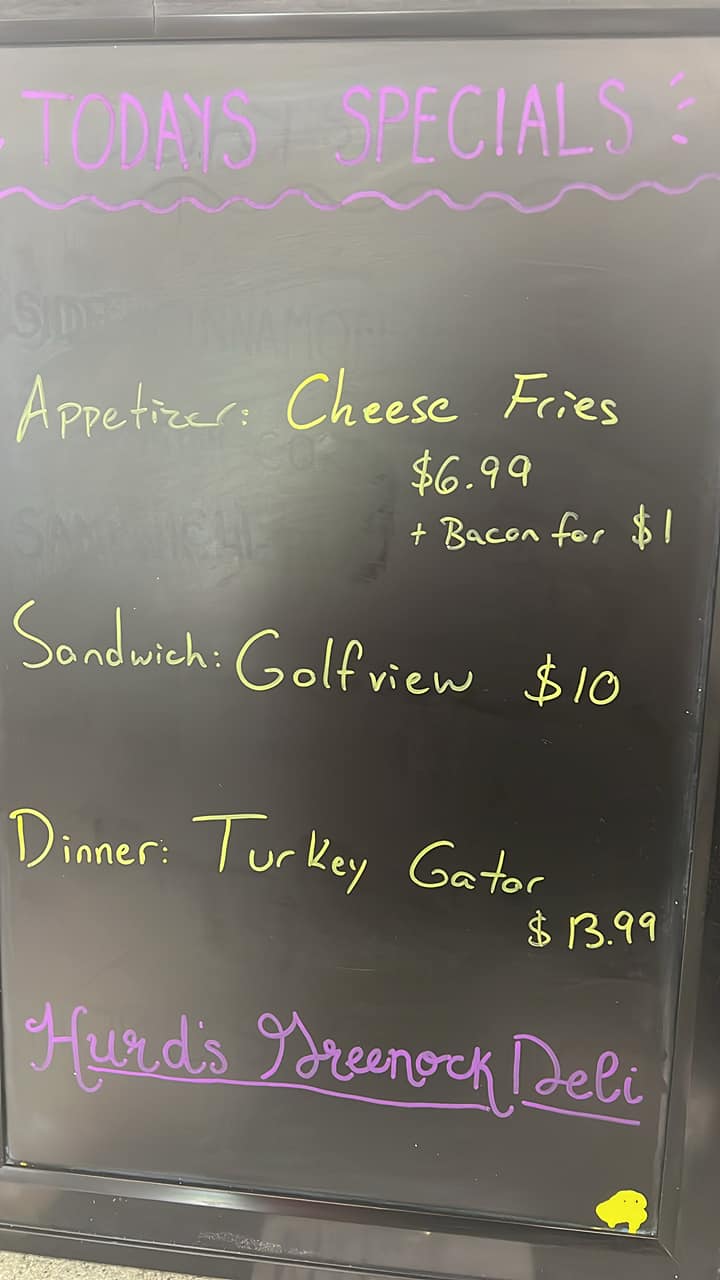 TODAYS SPECIALS
Appetizer: Cheese Fries
$6.99
+ Bacon for $1
Sandwich: Golfview $10
Dinner: Turkey Gator
$13.99
Hurd's Greenock Deli